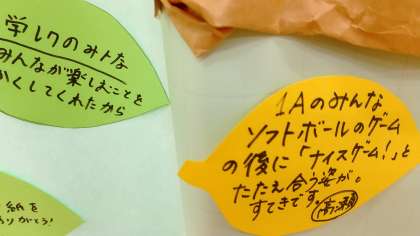 学しクのみトな
みんなが楽しむことを
かくしてくれたから
1Aのみんな
ソフトボールのゲーム
の後に「ナイスゲーム!」と
たたえ合う姿が。
すてきです。高瀬
紙を
ありがとう!